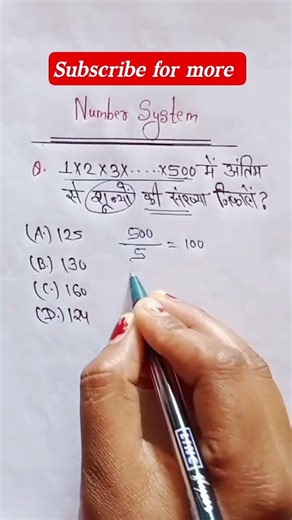 Subscribe for more
Number System
Q. 1×2×3×.....×500 में अंतिम
से शून्यों की संख्या निकालें?
(A.) 125
(B.) 130
(C.) 160
(D.) 124
500
5
= 100